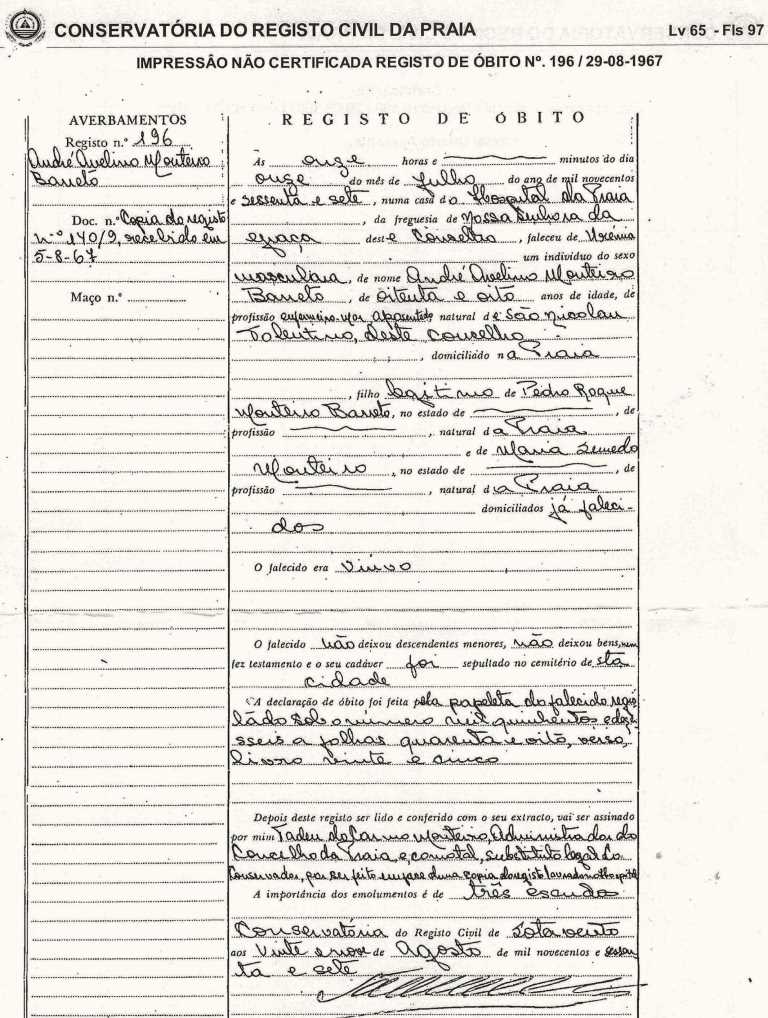 CONSERVATÓRIA DO REGISTO CIVIL DA PRAIA
Lv 65 - Fls 97
IMPRESSÂO NÃO CERTIFICADA REGISTO DE ÓBITO Nº. 196 / 29-08-1967
AVERBAMENTOS
Registo n.º 196
André Avelino Monteiro
Barreto
Doc. n.º Copia do registo
n.º 140/9, recebido em
5-8-67
Maço n.º
REGISTO DE ÓBITO
Às onze horas e minutos do dia
onze do mês de Julho do ano de mil novecentos
e sessenta e sete, numa casa do Hospital da Praia
, da freguesia de Nossa Senhora da
graça deste Conselho, faleceu de Urémia
um indivíduo do sexo
masculino, de nome André Avelino Monteiro
Barreto, de oitenta e oito anos de idade, de
profissão enfermeiro-mor aposentado natural de São Nicolau
Tolentino, deste conselho
, domiciliado na Praia
, filho legitimo de Pedro Roque
Monteiro Barreto, no estado de , de
profissão , natural da Praia
e de Maria Semedo
Monteiro, no estado de , de
profissão , natural da Praia
domiciliados já faleci-
dos
O falecido era viuvo
O falecido não deixou descendentes menores, não deixou bens, nem
fez testamento e o seu cadáver foi sepultado no cemitério desta
cidade
A declaração de óbito foi feita pela papeleta do falecido regis-
tádo sob o número mil quinhentos e dezas-
sseis a folhas quarenta e oito, verso,
livro vinte e cinco
Depois deste registo ser lido e conferido com o seu extracto, vai ser assinado
por mim Tadeu do Carmo Monteiro, Administrador do
Concelho da Praia e, como tal, substituto legal do
Conservador, por ser feito em face duma copia do registo lavrado no Hospital
A importância dos emolumentos é de três escudos
Conservatória do Registo Civil de Sotavento
aos vinte e nove de Agosto de mil novecentos e sessen-
ta e sete